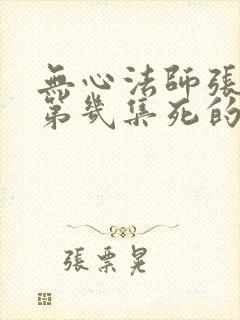 無心法師張
第幾集死的
張票晃